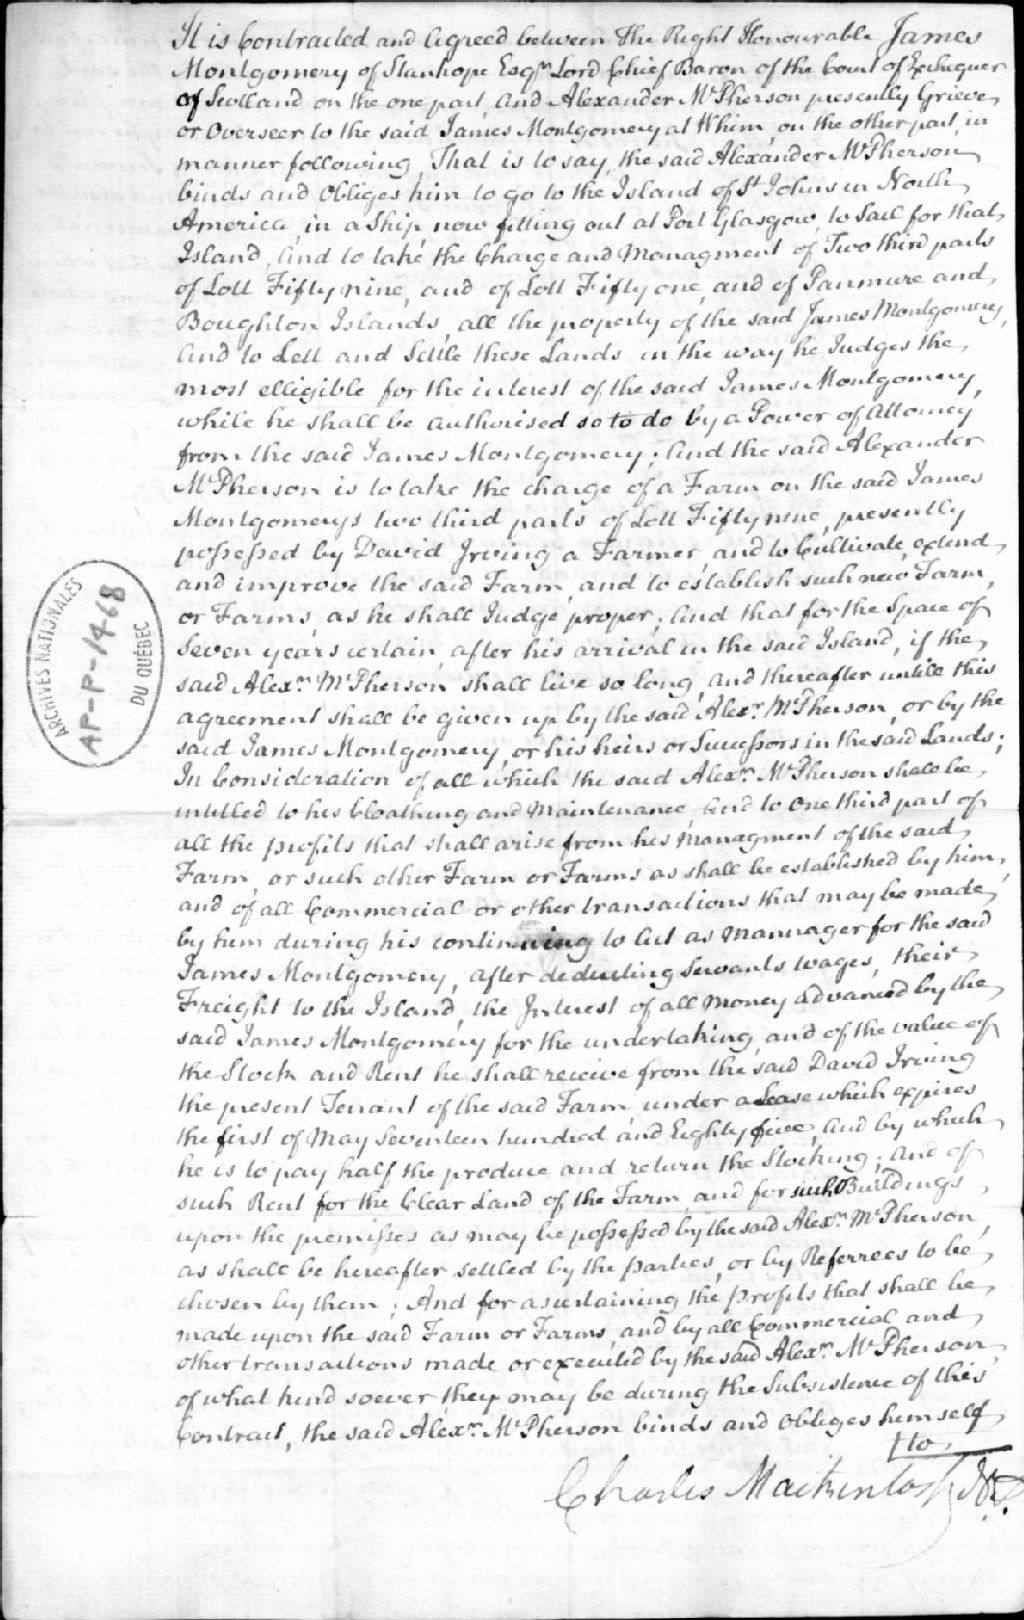 It is Contracted and Agreed between The Right Honourable James
Montgomery of Stanhope Esqr. Lord Chief Baron of the Court of Exchequer
of Scotland on the one part, And Alexander McPherson presently Grieve
or Overseer to the said James Montgomery at Whim, on the other part, in
manner following, That is to say, the said Alexander McPherson
binds and Obliges him to go to the Island of St Johns in North
America, in a Ship, now fitting out at Port Glasgow, to Sail for that
Island, And to take the Charge and Managment of Two third parts
of Lott Fifty nine, and of Lott Fifty one, and of Panmure and
Boughton Islands, all the property of the said James Montgomery,
And to Lett and Settle these Lands in the way he Judges the
most elligible for the interest of the said James Montgomery,
while he shall be authorised so to do by a Power of Attorney
from the said James Montgomery; And the said Alexander
McPherson is to take the charge of a Farm on the said James
Montgomerys two third parts of Lott Fifty nine, presently
possessed by David Irving a Farmer, and to Cultivate, extend,
and improve the said Farm, and to establish such new Farm,
or Farms, as he shall Judge proper; And that for the Space of
Seven years certain, after his arrival in the said Island, if the
said Alexr. McPherson shall live so long, and thereafter untill this
agreement shall be given up by the said Alexr. McPherson, or by the
said James Montgomery, or his heirs or Successors in the said Lands;
In Consideration of all which the said Alexr. McPherson shall be
intitled to his Cloathing and Maintenance, And to One third part of
all the profits that shall arise from his Managment of the said
Farm, or such other Farm or Farms as shall be established by him,
and of all Commercial or other transactions that may be made
by him during his continuing to Act as Mannager for the said
James Montgomery, after deducting Servants wages, their
Freight to the Island, the Interest of all money advanced by the
said James Montgomery for the undertaking, and of the value of
the Stock and Rent he shall receive from the said David Irving
the present Tenant of the said Farm under a Lease which expires
the first of May Seventeen hundred and Eighty five, And by which
he is to pay half the produce and return the Stocking; And of
such Rent for the Clear Land of the Farm, and for such Buildings
upon the premisses as may be possessed by the said Alexr. McPherson,
as shall be hereafter settled by the parties, or by Referrees to be
chosen by them; And for ascertaining the profits that shall be
made upon the said Farm or Farms, and by all Commercial and
other transactions made or executed by the said Alexr. McPherson,
of what kind soever they may be during the Subsistence of this
Contract, the said Alexr. McPherson binds and Obliges himself
to
Charles Mackintosh N.P.
ARCHIVES NATIONALES
AP-P-1468
DU QUÉBEC